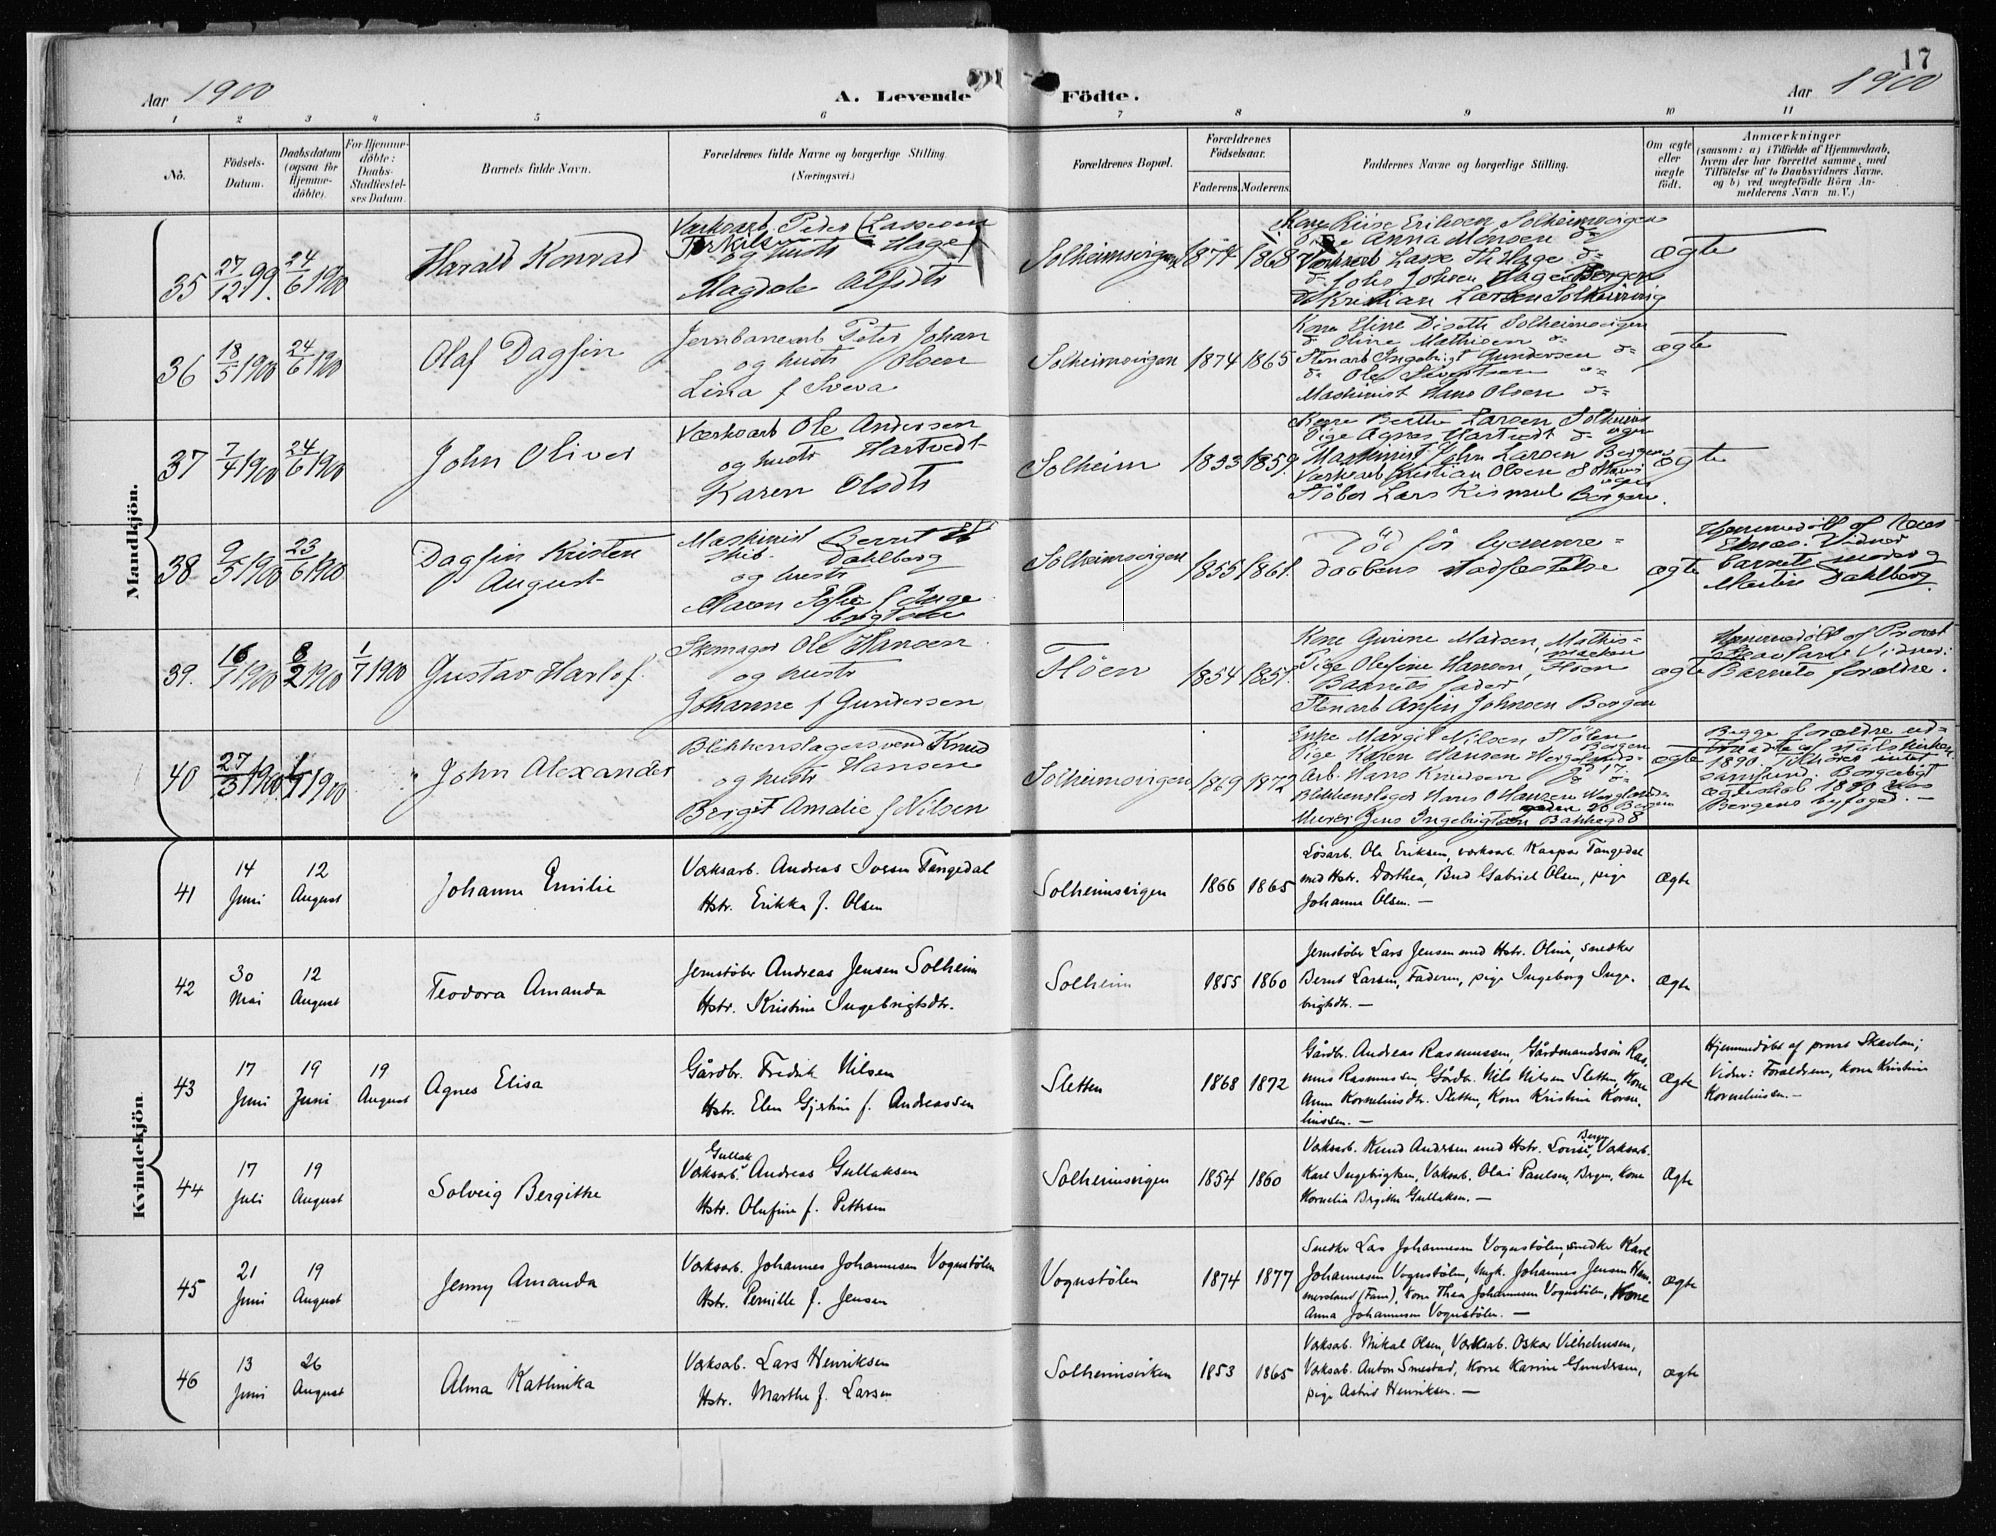 17
Aar 1900
A. Levende Födte.
Aar 1900
1 2 3 4 5 6 7 8 9 10 11
No.
Födsels-
Datum.
Daabsdatum
(ogsaa for
Hjemme-
döbte).
For Hjemme-
döbte:
Daabs-
Stadfæstel-
ses Datum.
Barnets fulde Navn.
Forældrenes fulde Navne og borgerlige Stilling.
(Næringsvei.)
Forældrenes Bopæl.
Forældrenes
Födselsaar.
Faderens. Moderens.
Faddernes Navne og borgerlige Stilling.
Om ægte
eller
uægte
født.
Anmærkninger
(saasom: a) i Tilfælde af Hjemmedaab,
hvem der har forrettet samme, med
Tilföielse af to Daabsvidners Navne,
og b) ved uægtefödte Börn An-
melderens Navn m. V.)
Mandkjön.
35 27/12 99. 24/6 1900
Harald Konrad
Værksarb. Peder (Lassesen
og hustr Hage)
Magdele Olsdtr
Solheimsvigen 1874 1868
Kone Eriksen, Solheimsvigen
Anna Monsen do
Værksarb Lasse Th Hage do
do Johs Johsen Hage Bergen
do Kristian Larsen Solheimsvig
ægte
36 18/5 1900 24/6 1900
Olaf Dagfin
Jernbanearb Peter Johan
og hustr Olsen
Lina f Sveva
Solheimsvigen 1874 1865
Kone Eline Diseth Solheimsvigen
do Oline Mathisen do
Stenarb Ingebrigt Gundersen do
do Ole Sivertsen do
Maskinist Hans Olsen do
ægte
37 7/4 1900 24/6 1900
John Oliver
Værksarb Ole Andersen
og hustr Hartvedt
Karen Olsdtr
Solheim 1853 1859.
Kone Berthe Larsen Solheims
Pige Agnes Hartvedt do vigen
Maskinist John Larsen Bergen
Værksarb Kristian Olsen Solheims
vigen
Støber Lars Kismul Bergen.
ægte
38 9/5 1900 23/6 1900
Dagfin Kristen
August
Maskinist Berent
skib. Dahlberg
og hustr
Maren Sofie f Inge
brigtsen
Solheimsvigen 1855 1861.
Død før hjemme-
daabens stadfæstelse
ægte
Hjemmedøbt af
Vidner
barnets moder og
Martin Dahlberg
39. 16/1 1900 8/2 1900 1/7 1900
Gustav Harlof.
Skomager Ole Hansen
og hustr
Johanne f Gundersen
Fløen
1854 1851.
Kone Gurine Madsen, Mathis-
marken
Pige Olefine Hansen, Fløen
Barnets fader
Stenarb Anfin Johnsen Bergen
ægte
Hjemmedøbt af Provst
Skavlan. Vidner:
Barnets forældre.
40 27/3 1900 1/7 1900
John Alexander
Blikkenslagersvend Knud
og hustr Hansen
Berget Amalie f Nilsen
Solheimsvigen 1869 1872
Enke Margit Nilsen Stølen
Bergen
Pige Karen Hansen Wergelands-
Arb. Hans Knudsen
Blikkenslager Hans O Hansen Wergelands
gaden 26 Bergen
Murer Jens Ingebrigtsen Bakkegd 8
ægte
Begge forældre ud-
traadte af statskirken
1890. Tilhører intet
samfund. Borgerligt
ægteskab 1890 hos
Bergens byfoged. —
Kvindekjön.
41 14 Juni 12 August
Johanne Emilie
Værksarb. Andreas Iversen Tangedal
Hstr. Erikka f. Olsen
Solheimsvigen 1866 1865
Løsarb. Ole Eriksen, værksarb. Kaspar Tangedal
med Hstr. Dorthea, Bud Gabriel Olsen, pige
Johanne Olsen. —
Ægte
42 30 Mai 12 August
Teodora Amanda
Jernstøber Andreas Jensen Solheim
Hstr. Kristine Ingebrigtsdtr.
Solheim 1855 1860
Jernstøber Lars Jensen med Hstr. Oline, snedker
Bernt Larsen, Faderen, pige Ingeborg Inge-
brigtsdtr. —
Ægte
43 17 Juni 19 Juni 19 August
Agnes Elisa
Gårdbr. Fredrik Nilsen
Hstr. Elen Gjertine f. Andreassen
Sletten 1868 1872
Gårdbr. Andreas Rasmussen, Gårdmandssøn Ras-
mus Rasmussen, Gårdbr. Nils Nilsen Sletten, Kone
Anna Korneliusdtr. Sletten, Kone Kristine Korne-
liussen. —
Ægte
Hjemmedøbt af provst Skavlan;
Vidner: Forældrene, kone Kristine
Korneliussen. —
44 17 Juli 19 August
Solveig Bergithe
Gullak
Værksarb. Andreas Gullaksen
Hstr. Olufine f. Pettersen
Solheimsvigen 1854 1860
Bergen
Værksarb. Knud Andersen med Hstr. Lovise, Værksarb.
Karl Ingebrigtsen, Værksarb. Olai Paulsen, Bergen, Kone
Kornelia Bergithe Gullaksen. —
Ægte
45 21 Juni 19 August
Jenny Amanda
Værksarb. Johannes Johannesen Vognstølen
Hstr. Pernille f. Jensen
Vognstølen 1874 1877
Snedker Lars Johannesen Vognstølen, snedker Karl
Johannesen Vognstølen, Ungk. Johannes Jensen Ham-
mersland (Fane), Kone Thea Johannesen Vognstølen, Kone
Anna Johannesen Vognstølen. —
Ægte
46 13 Juni 26 August
Alma Kathinka
Værksarb. Lars Henriksen
Hstr. Marthe f. Larsen
Solheimsviken 1853 1865
Værksarb. Mikal Olsen, Værksarb. Oskar Vilhelmsen,
Værksarb. Anton Smestad, Kone Karine Gundersen,
pige Astrid Henriksen. —
Ægte